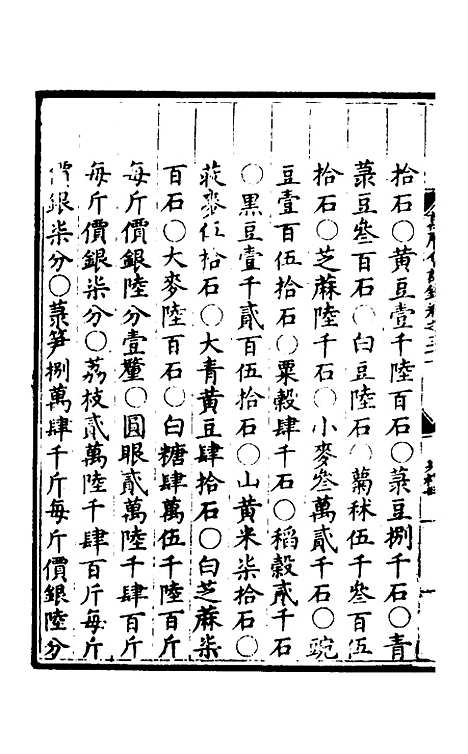 拾石○黄豆壹千陸百石○菉豆捌千石○青
菉豆叁百石○白豆陸石○薥秫伍千叁百伍
拾石○芝蔴陸千石○小麥叁萬貳千石○豌
豆壹百伍拾石○粟穀肆千石○稻穀貳千石
○黑豆壹千貳百伍拾石○山黄米柒拾石○
蕎麥伍拾石○大青黄豆肆拾石○白芝蔴柒
百石○大麥陸百石○白糖肆萬伍千陸百斤
每斤價銀陸分壹釐○圓眼貳萬陸千肆百斤
每斤價銀柒分○荔枝貳萬陸千肆百斤每斤
價銀柒分○菉笋捌萬肆千斤每斤價銀陸分